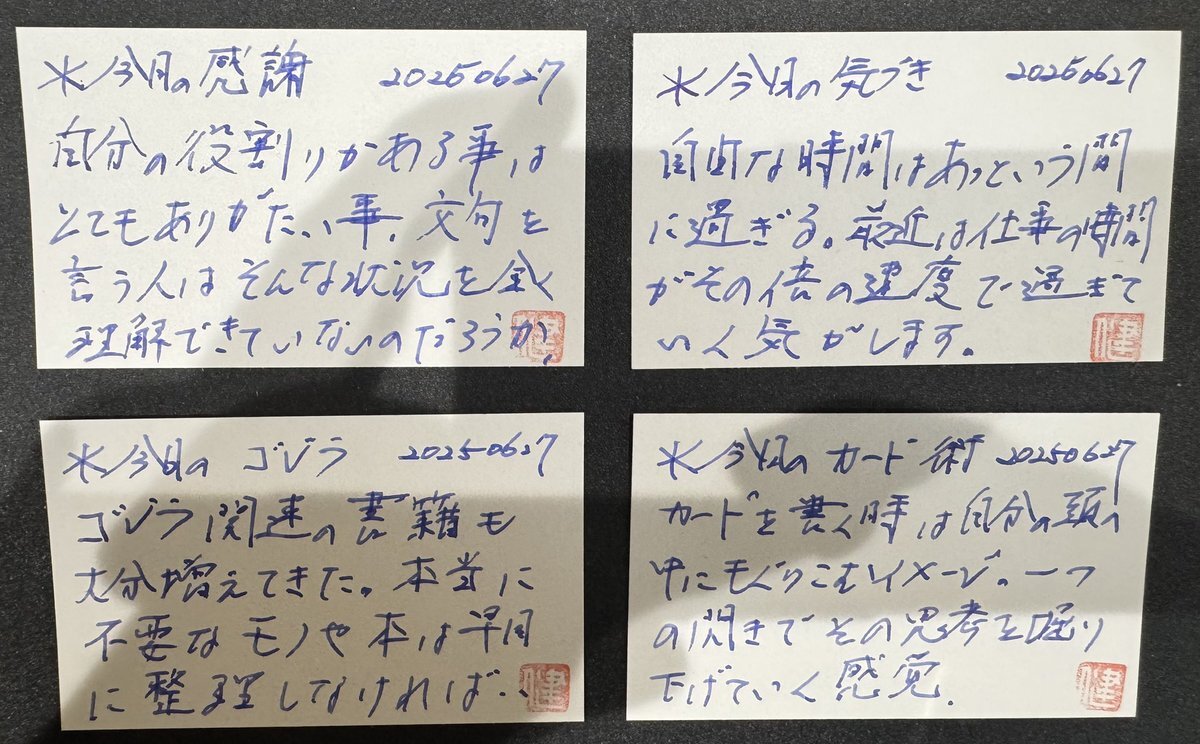 *今日の感謝 20250627
自分の役割りがある事は
とてもありがたい事、文句を
言う人はそんな状況を全く
理解できていないのだろうか、
健
*今日の気づき 20250627
自由な時間はあっという間
に過ぎる。最近は仕事の時間
がその倍の速度で過ぎて
いく気がします。
健
*今日のゴジラ 20250627
ゴジラ関連の書籍も
大分増えてきた。本当に
不要なモノや本は早目
に整理しなければ‥
健
*今日のカード術 20250627
カードを書く時は自分の頭の
中にもぐりこむイメージ。一つ
の閃きでその思考を掘り
下げていく感覚.
健